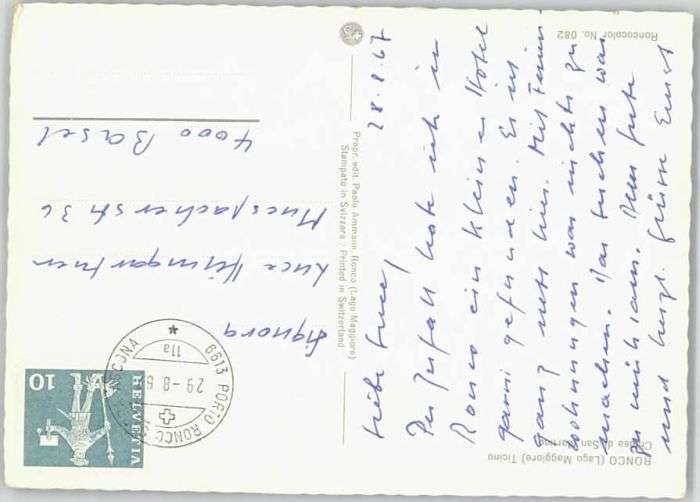 RONCO (Lago Maggiore) Ticino
Chiesa di San Martino
28.8.67
Liebe Luce!
Per Zufall habe ich in
Ronco ein kleines Hotel
garni gefunden. Es ist
ganz nett hier. Mit Ferien
wohnungen war nichts zu
machen. Das suchen war
mühsam. Alles Gute
und herzl. Grüsse Ernst
Roncocolor No. 082
Propr. edit. Paolo Ammann, Ronco (Lago Maggiore)
Stampato in Svizzera · Printed in Switzerland
HELVETIA
10
6613 PORTO RONCO
29-8-6
11a
Signora
Luce Heimgartner
Muespacherstr. 36
4000 Basel